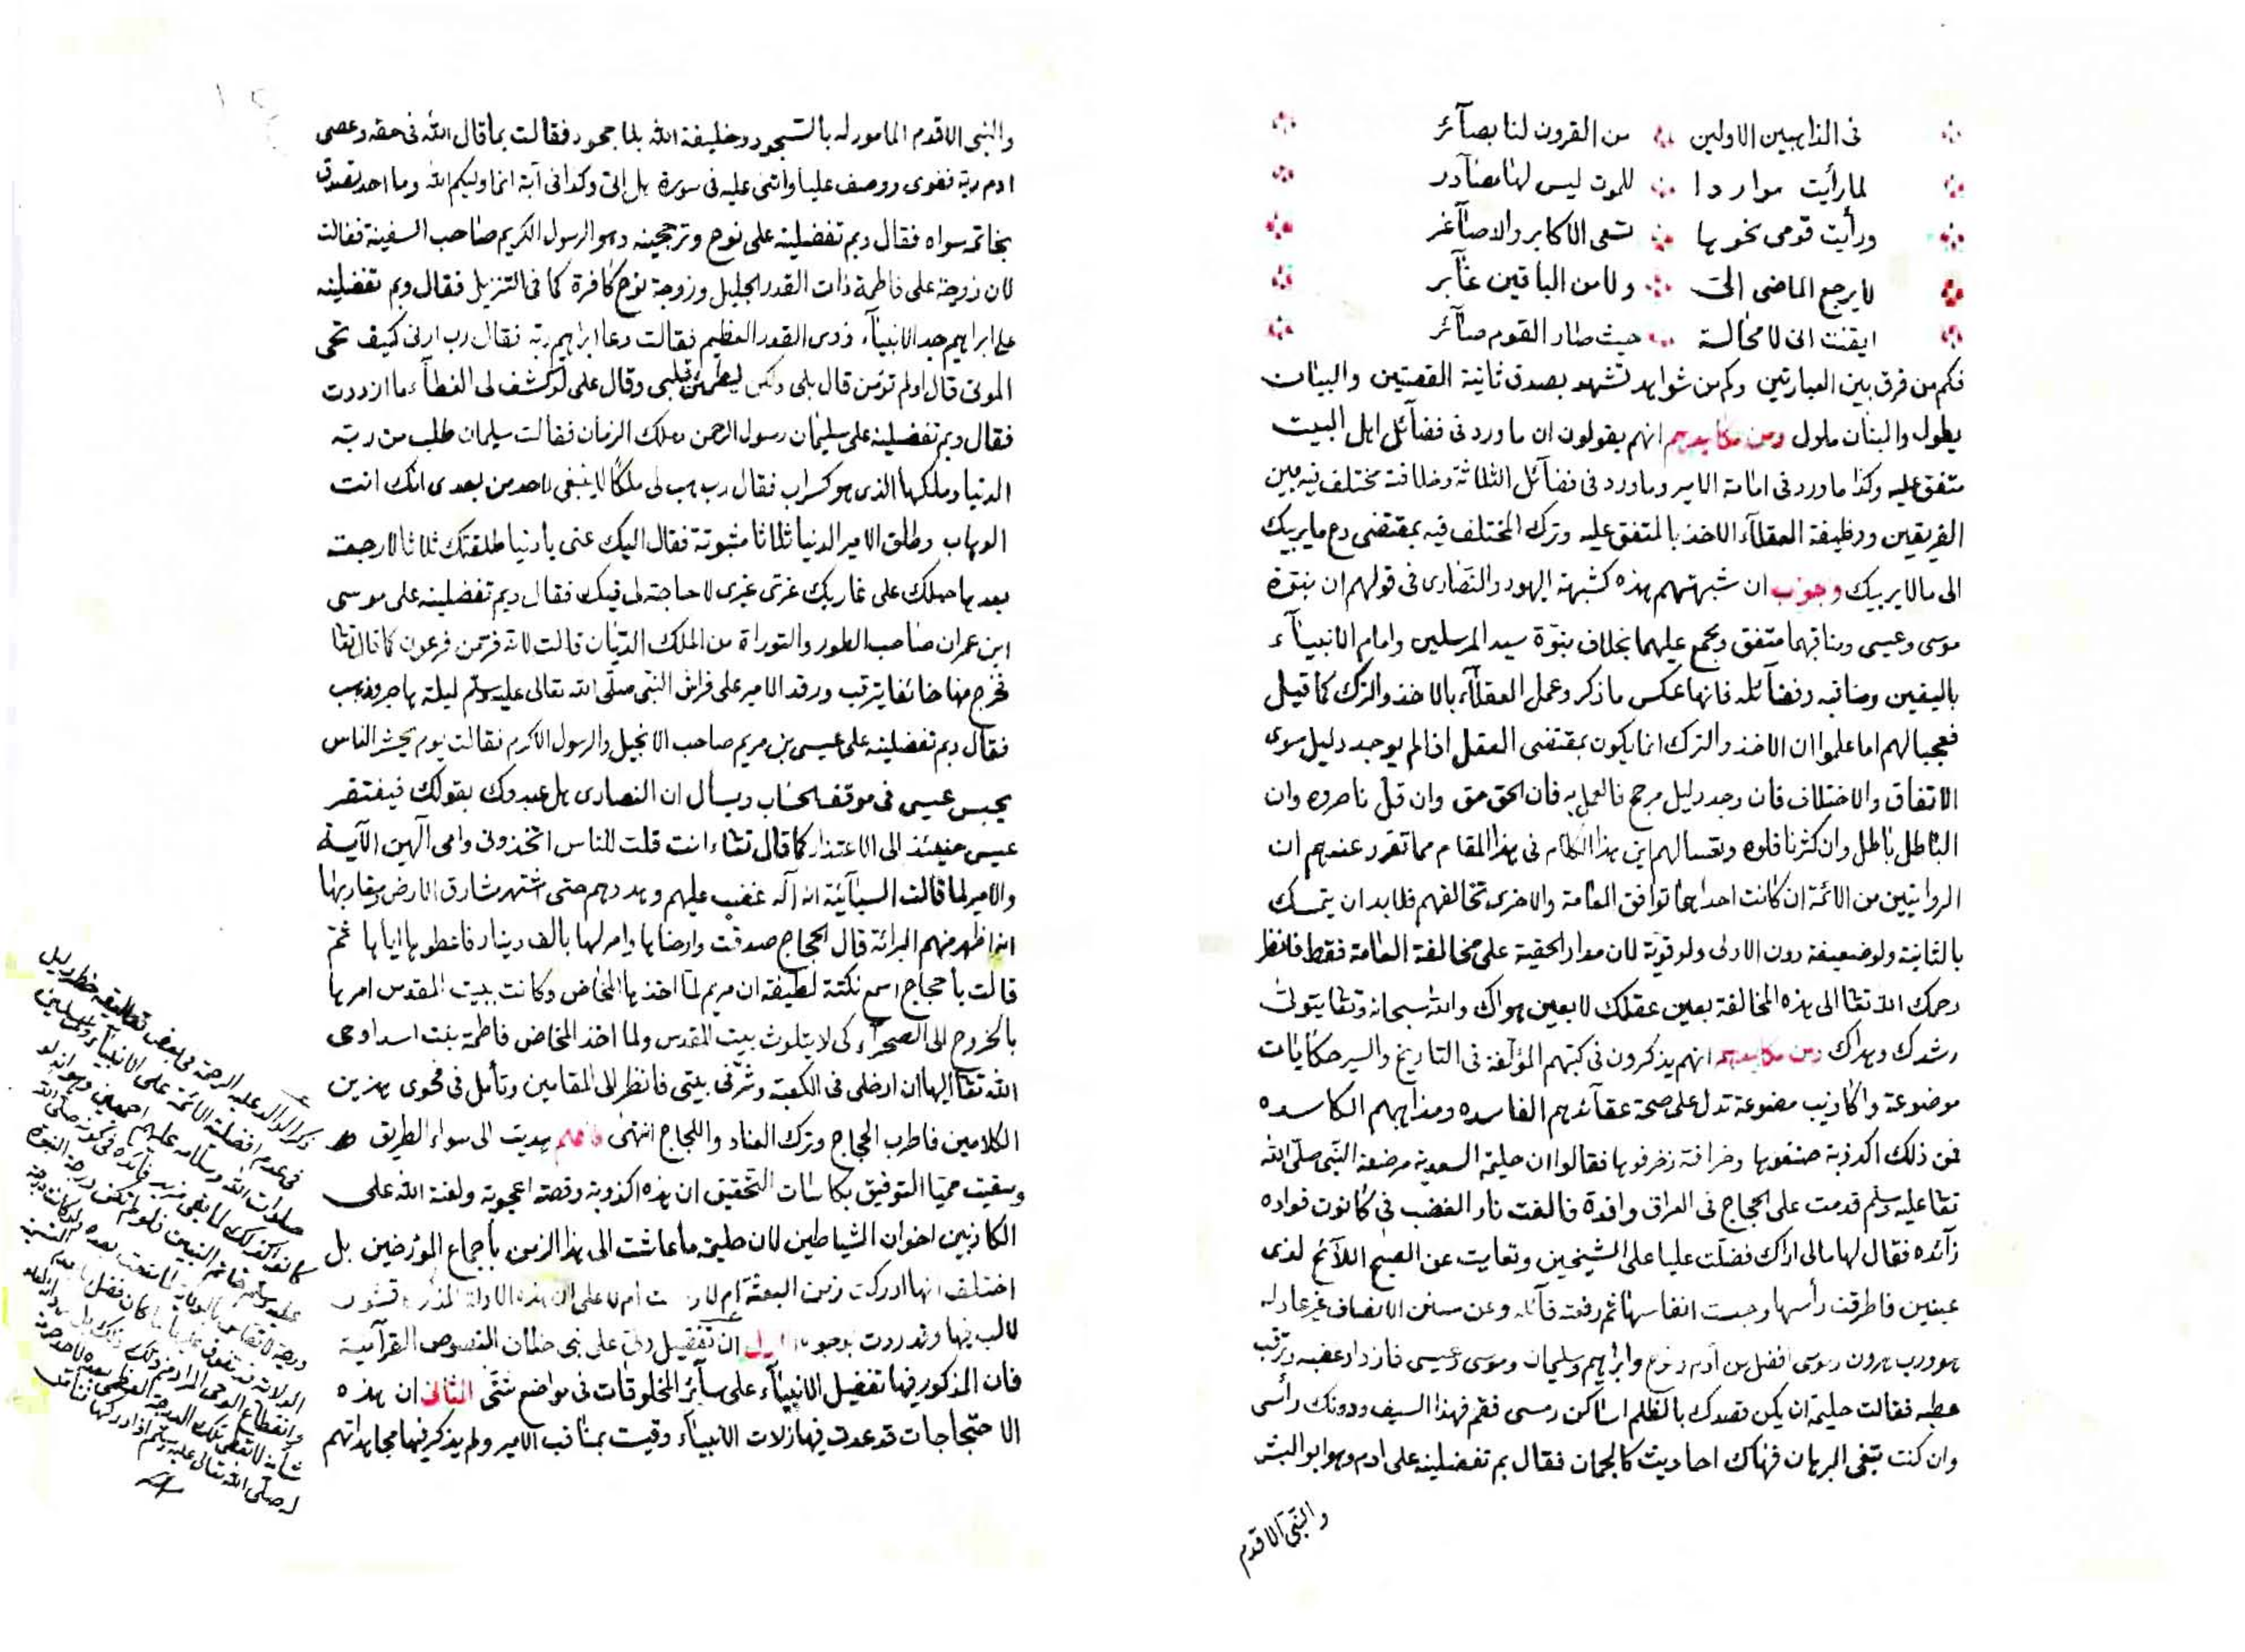 في الذاهبين الاولين من القرون لنا بصآئر
لما رأيت مواردا للموت ليس لها مصآدر
ورأيت قومي نحوها تسعى الاكابر والاصآغر
لا يرجع الماضي الى ولا من الباقين غآبر
ايقنت انى لا محالة حيث صار القوم صآئر
فكم من فرق بين العبارتين وكم من شواهد تشهد بصدق ثانية القصتين والبيان
يطول والبنان ملول ومن مكايدهم انهم يقولون ان ما ورد في فضآئل اهل البيت
متفق عليه وكذا ما ورد في امامة الامير وما ورد في فضآئل الثلاثة وخلافة مختلف فيه بين
الفريقين ووظيفة العقلآء الاخذ بالمتفق عليه وترك المختلف فيه بمقتضى دع ما يريبك
الى ما لا يريبك وجوابه ان شبهتهم هذه كشبهة اليهود والنصارى في قولهم ان بنوة
موسى وعيسى ومناقبهما متفق ومجمع عليهما بخلاف بنوة سيد المرسلين وامام الانبيآء
باليقين ومناقبه وفضآئله فانها عكس ما ذكر وعمل العقلآء بالاخذ والترك كما قيل
فعجبا لهم اما علموا ان الاخذ والترك انما يكون بمقتضى العقل اذا لم يوجد دليل سوى
الاتفاق والاختلاف فان وجد دليل مرجح فالعمل به فان الحق حق وان قل ناصروه وان
الباطل باطل وان كثر ناقلوه وتعسا لهم اين هذا الكلام في هذا المقام مما تقرر عندهم ان
الروايتين من الائمة ان كانت احداهما توافق العامة والاخرى تخالفهم فلا بد ان يتمسك
بالثانية ولو ضعيفة دون الاولى ولو قوية لان مدار الحقية على مخالفة العامة فقط فانظر
رحمك الله تعا الى هذه المخالفة بعين عقلك لا بعين هواك والله سبحانه وتعا يتولى
رشدك وهداك ومن مكايدهم انهم يذكرون في كتبهم المؤلفة في التاريخ والسير حكايات
موضوعة واكاذيب مصنوعة تدل على صحة عقآئدهم الفاسده ومذاهبهم الكاسده
فمن ذلك اكذوبة صنفوها وخرافة زخرفوها فقالوا ان حليمة السعدية مرضعة النبي صلى الله
تعا عليه وسلم قدمت على الحجاج في العراق وافدة فالفت نار الغضب في كانون فواده
زآئده فقال لها مالى اراك فضلت عليا على الشيخين وتعايت عن الصبح اللآئح لذى
عينين فاطرقت رأسها وحبست انفاسها ثم رفعته قآئلة وعن سنن الانصاف غير عادله
هو ورب هرون وموسى افضل من آدم ونوح وابراهيم وسليمان وموسى وعيسى فازداد غضبه وترقب
عطبه فقالت حليمة ان يكن قصدك بالظلم اساكن رمسى فقم فهذا السيف ودونك رأسى
وان كنت تبغى البرهان فهناك احاديث كالجمان فقال بم تفضلينه على ادم وهو ابو البشر
والنبى الاقدم
والنبى الاقدم المامور له بالسجود وخليفة الله بلا جحود فقالت بما قال الله في حقه وعصى
ادم ربه فغوى ووصف عليا واثنى عليه في سورة هل اتى وكذا في آية انما وليكم الله وما احد تصدق
بخاتمه سواه فقال وبم تفضلينه على نوح وترجحينه وهو الرسول الكريم صاحب السفينة فقالت
لان زوجة على فاطمة ذات القدر الجليل وزوجة نوح كافرة كما في التنزيل فقال وبم تفضلينه
على ابراهيم جد الانبيآء ذوى القدر العظيم فقالت دعا ابراهيم ربه فقال رب ارنى كيف تحى
الموتى قال اولم تؤمن قال بلى ولكن ليطمئن قلبى وقال على لو كشف لى الغطآء ما ازددت
فقال وبم تفضلينه على سليمان رسول الرحمن وملك الزمان فقالت سليمان طلب من ربه
الدنيا وملكها الذى هو كسراب فقال رب هب لى ملكا لا ينبغى لاحد من بعدى انك انت
الوهاب وطلق الامير الدنيا ثلاثا مثبوتة فقال اليك عنى يا دنيا طلقتك ثلاثا لا رجعة
بعدها حبلك على غاربك غرى غيرى لا حاجة لى فيك فقال وبم تفضلينه على موسى
ابن عمران صاحب الطور والتوراة من الملك الديان قالت لانه فر من فرعون كما قال تعا
فخرج منها خائفا يترقب ورقد الامير على فراش النبى صلى الله تعالى عليه وسلم ليلة هاجر وذهب
فقال وبم تفضلينه على عيسى بن مريم صاحب الانجيل والرسول الاكرم فقالت يوم يحشر الناس
يحبس عيسى في موقف الحساب ويسأل ان النصارى هل عبدوك بقولك فيفتقر
عيسى حينئذ الى الاعتذار كما قال تعا ءانت قلت للناس اتخذونى وامى آلهين الآية
والامير لما قالت السبآئية انه آله غضب عليهم وهددهم حتى اشتهر مشارق الارض ومغاربها
انه اظهر منهم البرائة قال الحجاج صدقت وارضاها وامر لها بالف دينار فاعطوها اياها ثم
قالت يا حجاج اسمع نكتة لطيفة ان مريم لما اخذها المخاض وكانت ببيت المقدس امرها
بالخروج الى الصحرآء كى لا يتلوث بيت المقدس ولما اخذ المخاض فاطمة بنت اسد اوحى
الله تعا اليها ان ادخلى في الكعبة وشرفى بيتى فانظر الى المقامين وتأمل في فحوى هذين
الكلامين فاطرب الحجاج وترك العناد واللجاج انتهى فاعلم هديت الى سوآء الطريق
وسقيت حميا التوفيق بكاسات التحقيق ان هذه اكذوبة وقصة اعجوبة ولعنة الله على
الكاذبين اخوان الشياطين لان حليمة ما عاشت الى هذا الزمن باجماع المؤرخين بل
اختلف انها ادركت زمن البعثة ام لا ام لا على ان هذه الادلة
لا لب فيها وقد ردت بوجوه الاول ان تفضيل ولى على نبى خلاف النصوص القرآنية
فان المذكور فيها تفضيل الانبيآء على سآئر المخلوقات في مواضع شتى الثانى ان هذه
الاحتجاجات قد عدت فيها زلات الانبيآء وقيست بمناقب الامير ولم يذكر فيها مجاهداتهم
ذكر الوالد عليه الرحمة في بعض تعاليقه
في عدم افضلية الائمة على الانبيآء والمرسلين
صلوات الله وسلامه عليهم اجمعين وهو انه لو
كانوا كذلك لما بقى مزيد فآئدة في كونه صلى الله
عليه وسلم خاتم النبيين